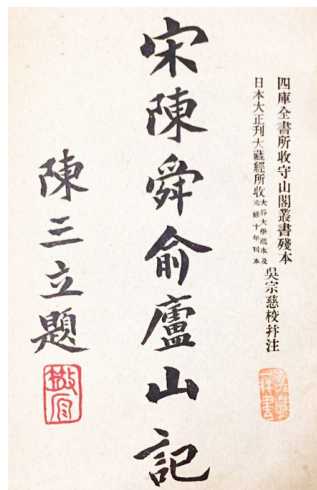 四庫全書所收守山閣叢書殘本
日本大正刊大藏經所收大谷大學藏本及元祿十年刊本
吳宗慈校幷注
宋陳舜俞廬山記
陳三立題